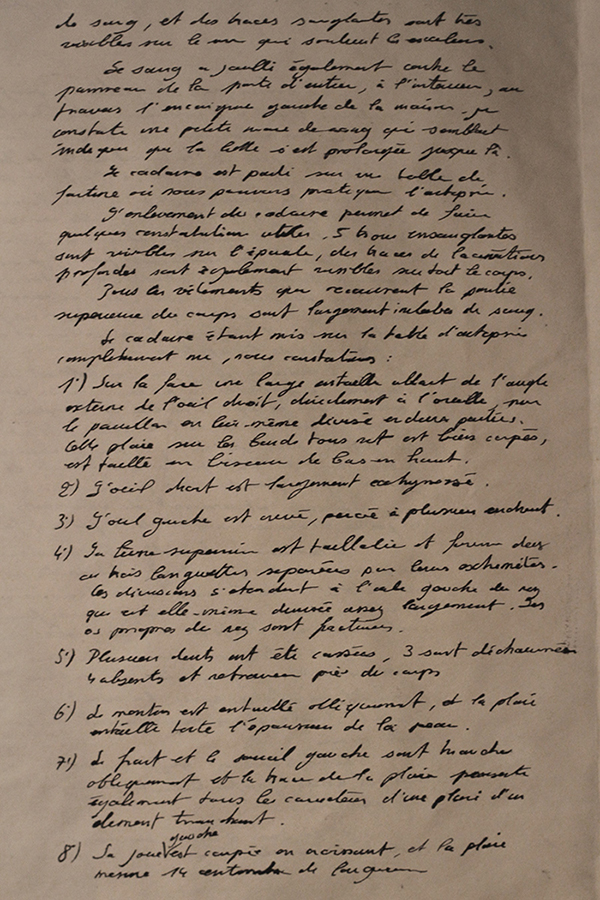 de sang, et des traces sanglantes sont très
visibles sur le mur qui soutient les escaliers.
Le sang a jailli également contre le
panneau de la porte d'entrée, à l'intérieur, au
travers l'encoignure gauche de la maison. Je
constate une petite mare de sang qui semblait
indiquer que la lutte s'est prolongée jusque là.
Le cadavre est placé sur une table de
fortune où nous pouvons pratiquer l'autopsie.
L'enlèvement du cadavre permet de faire
quelques constatations utiles. 5 trous ensanglantés
sont visibles sur l'épaule, des traces de lacérations
profondes sont également visibles sur tout le corps.
Tous les vêtements qui recouvrent la partie
supérieure du corps sont largement imbibés de sang.
Le cadavre étant mis sur la table d'autopsie
complètement nu, nous constatons :
1°) Sur la face une large entaille allant de l'angle
externe de l'oeil droit, directement à l'oreille,
le pavillon en lui-même divisé en deux parties.
Cette plaie sur les bords tous net est bien coupés,
est taillé en biseau de bas en haut.
2°) L'oeil droit est largement ecchymosé.
3°) L'oeil gauche est crevé, percé à plusieurs endroits.
4°) La lèvre supérieure est tailladée et forme deux
ou trois languettes séparées par leurs extrémités.
Les divisions s'étendent à l'aile gauche du nez
qui est elle-même divisée assez largement. Les
os propres du nez sont fracturés.
5°) Plusieurs dents ont été cassées, 3 sont déchaussées
4 absents et retrouvés près du corps
6°) Le menton est entaillé obliquement, et la plaie
entaille toute l'épaisseur de la peau.
7°) Le front et le sourcil gauche sont tranchés
obliquement et la trace de la plaie présente
également tous les caractères d'une plaie d'un
élément tranchant.
8°) La joue gauche est coupée en croissant, et la plaie
mesure 14 centimètres de longueur